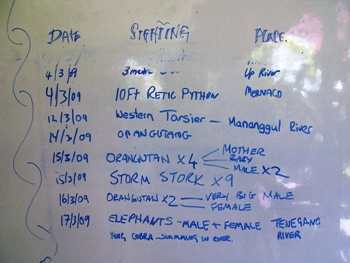 DATE SIGHTING PLACE.
4/3/09 3 metre Up River
4/3/09 10FT RETIC PYTHON
12/3/09 Western Tarsier - Mananggul River
14/3/09 ORANGUTANG
15/3/09 ORANGUTAN X4 MOTHER
BABY
MALE X2
15/3/09 STORM STORK X9
16/3/09 ORANGUTAN X2 VERY BIG MALE
FEMALE
17/3/09 ELEPHANTS - MALE + FEMALE TENEGANG
KING COBRA - SWIMMING IN RIVER. RIVER